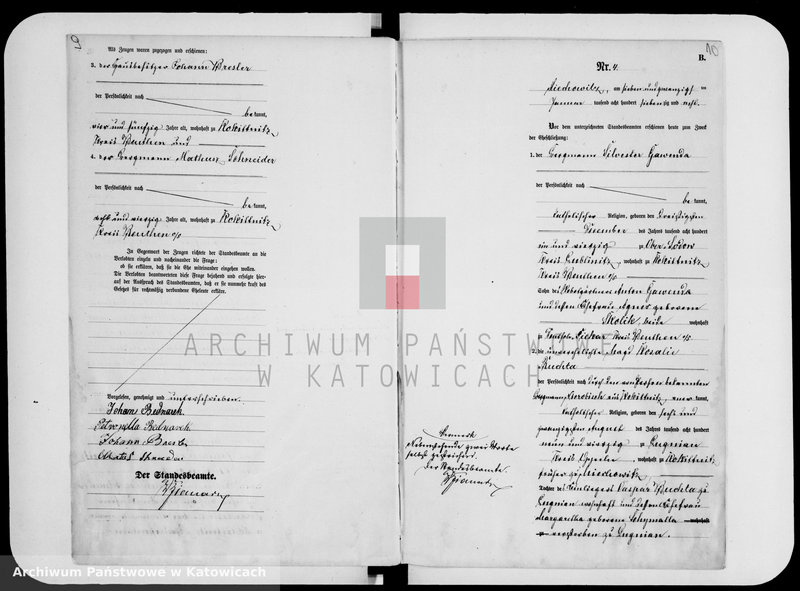 Als Zeugen waren zugezogen und erschienen:
3. der Hausbesitzer Johann Bresler
der Persönlichkeit nach
be kannt,
vier und fünfzig Jahre alt, wohnhaft zu Rokittnitz,
Kreis Beuthen und
4. der Bergmann Matheus Schneider
der Persönlichkeit nach
be kannt,
und vierzig Jahre alt, wohnhaft zu Rokittnitz
Kreis Beuthen o/S
In Gegenwart der Zeugen richtete der Standesbeamte an die
Verlobten einzeln und nacheinander die Frage:
ob sie erklären, daß sie die Ehe miteinander eingehen wollen.
Die Verlobten beantworteten diese Frage bejahend und erfolgte hier-
auf der Ausspruch des Standesbeamten, daß er sie nunmehr kraft des
Gesetzes für rechtmäßig verbundene Eheleute erkläre.
Vorgelesen, genehmigt und unterschrieben.
Johann Bednarek
Petronella Bednarek
Johann
Der Standesbeamte.
Bemerkt
zwei Worte
Der Standesbeamte.
B.
Nr. 4.
Miechowitz, am sieben und zwanzigsten
Januar tausend acht hundert siebenzig und acht.
Vor dem unterzeichneten Standesbeamten erschienen heute zum Zweck
der Eheschließung:
1. der Bergmann Silvester Gawenda
der Persönlichkeit nach
be kannt,
katholischer Religion, geboren den dreißigsten
Dezember des Jahres tausend acht hundert
ein und vierzig zu Ober
Kreis Lublinitz, wohnhaft zu Rokittnitz
Kreis Beuthen o/S
Sohn des Anton Gawenda
und dessen Ehefrau Agnes geborenen
Skolik, beide wohnhaft
zu Deutsch Piekar Kreis Beuthen o/S
2. die unverehelichte Magd Rosalie
Buchta
der Persönlichkeit nach durch den
Bergmann aus Rokittnitz, aner kannt,
katholischer Religion, geboren den sechs und
zwanzigsten August des Jahres tausend acht hundert
neun und vierzig zu Lugnian
Kreis Oppeln, wohnhaft zu Rokittnitz
früher zu Miechowitz
Tochter des Caspar Buchta zu
Lugnian wohnhaft und dessen Ehefrau
Margaretha geborene
verstorben zu Lugnian.
ARCHIWUM PAŃSTWOWE
W KATOWICACH
Archiwum Państwowe w Katowicach